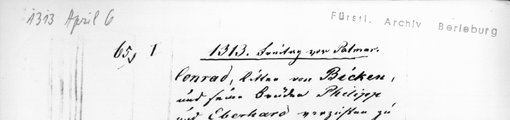 1313 April 6
Fürstl. Archiv Berleburg
65, 1
1313. Freitag vor Palmar.
Conrad, Ritter von Bicken,
und seine Brüder Philipp
und Eberhard verzichten zu